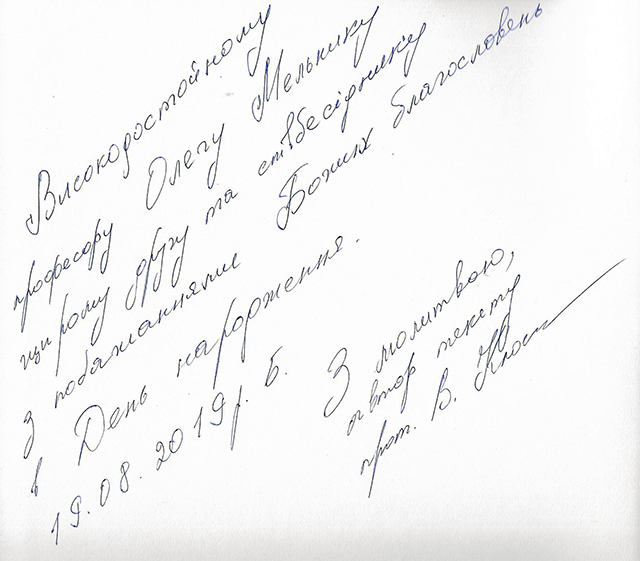 Високодостойному
професору Олегу Мельнику
щирому другу та співбесіднику
з побажаннями Божих благословень
в День народження.
19.08.2019 р. Б.
З молитвою,
автор тексту
прот. В.